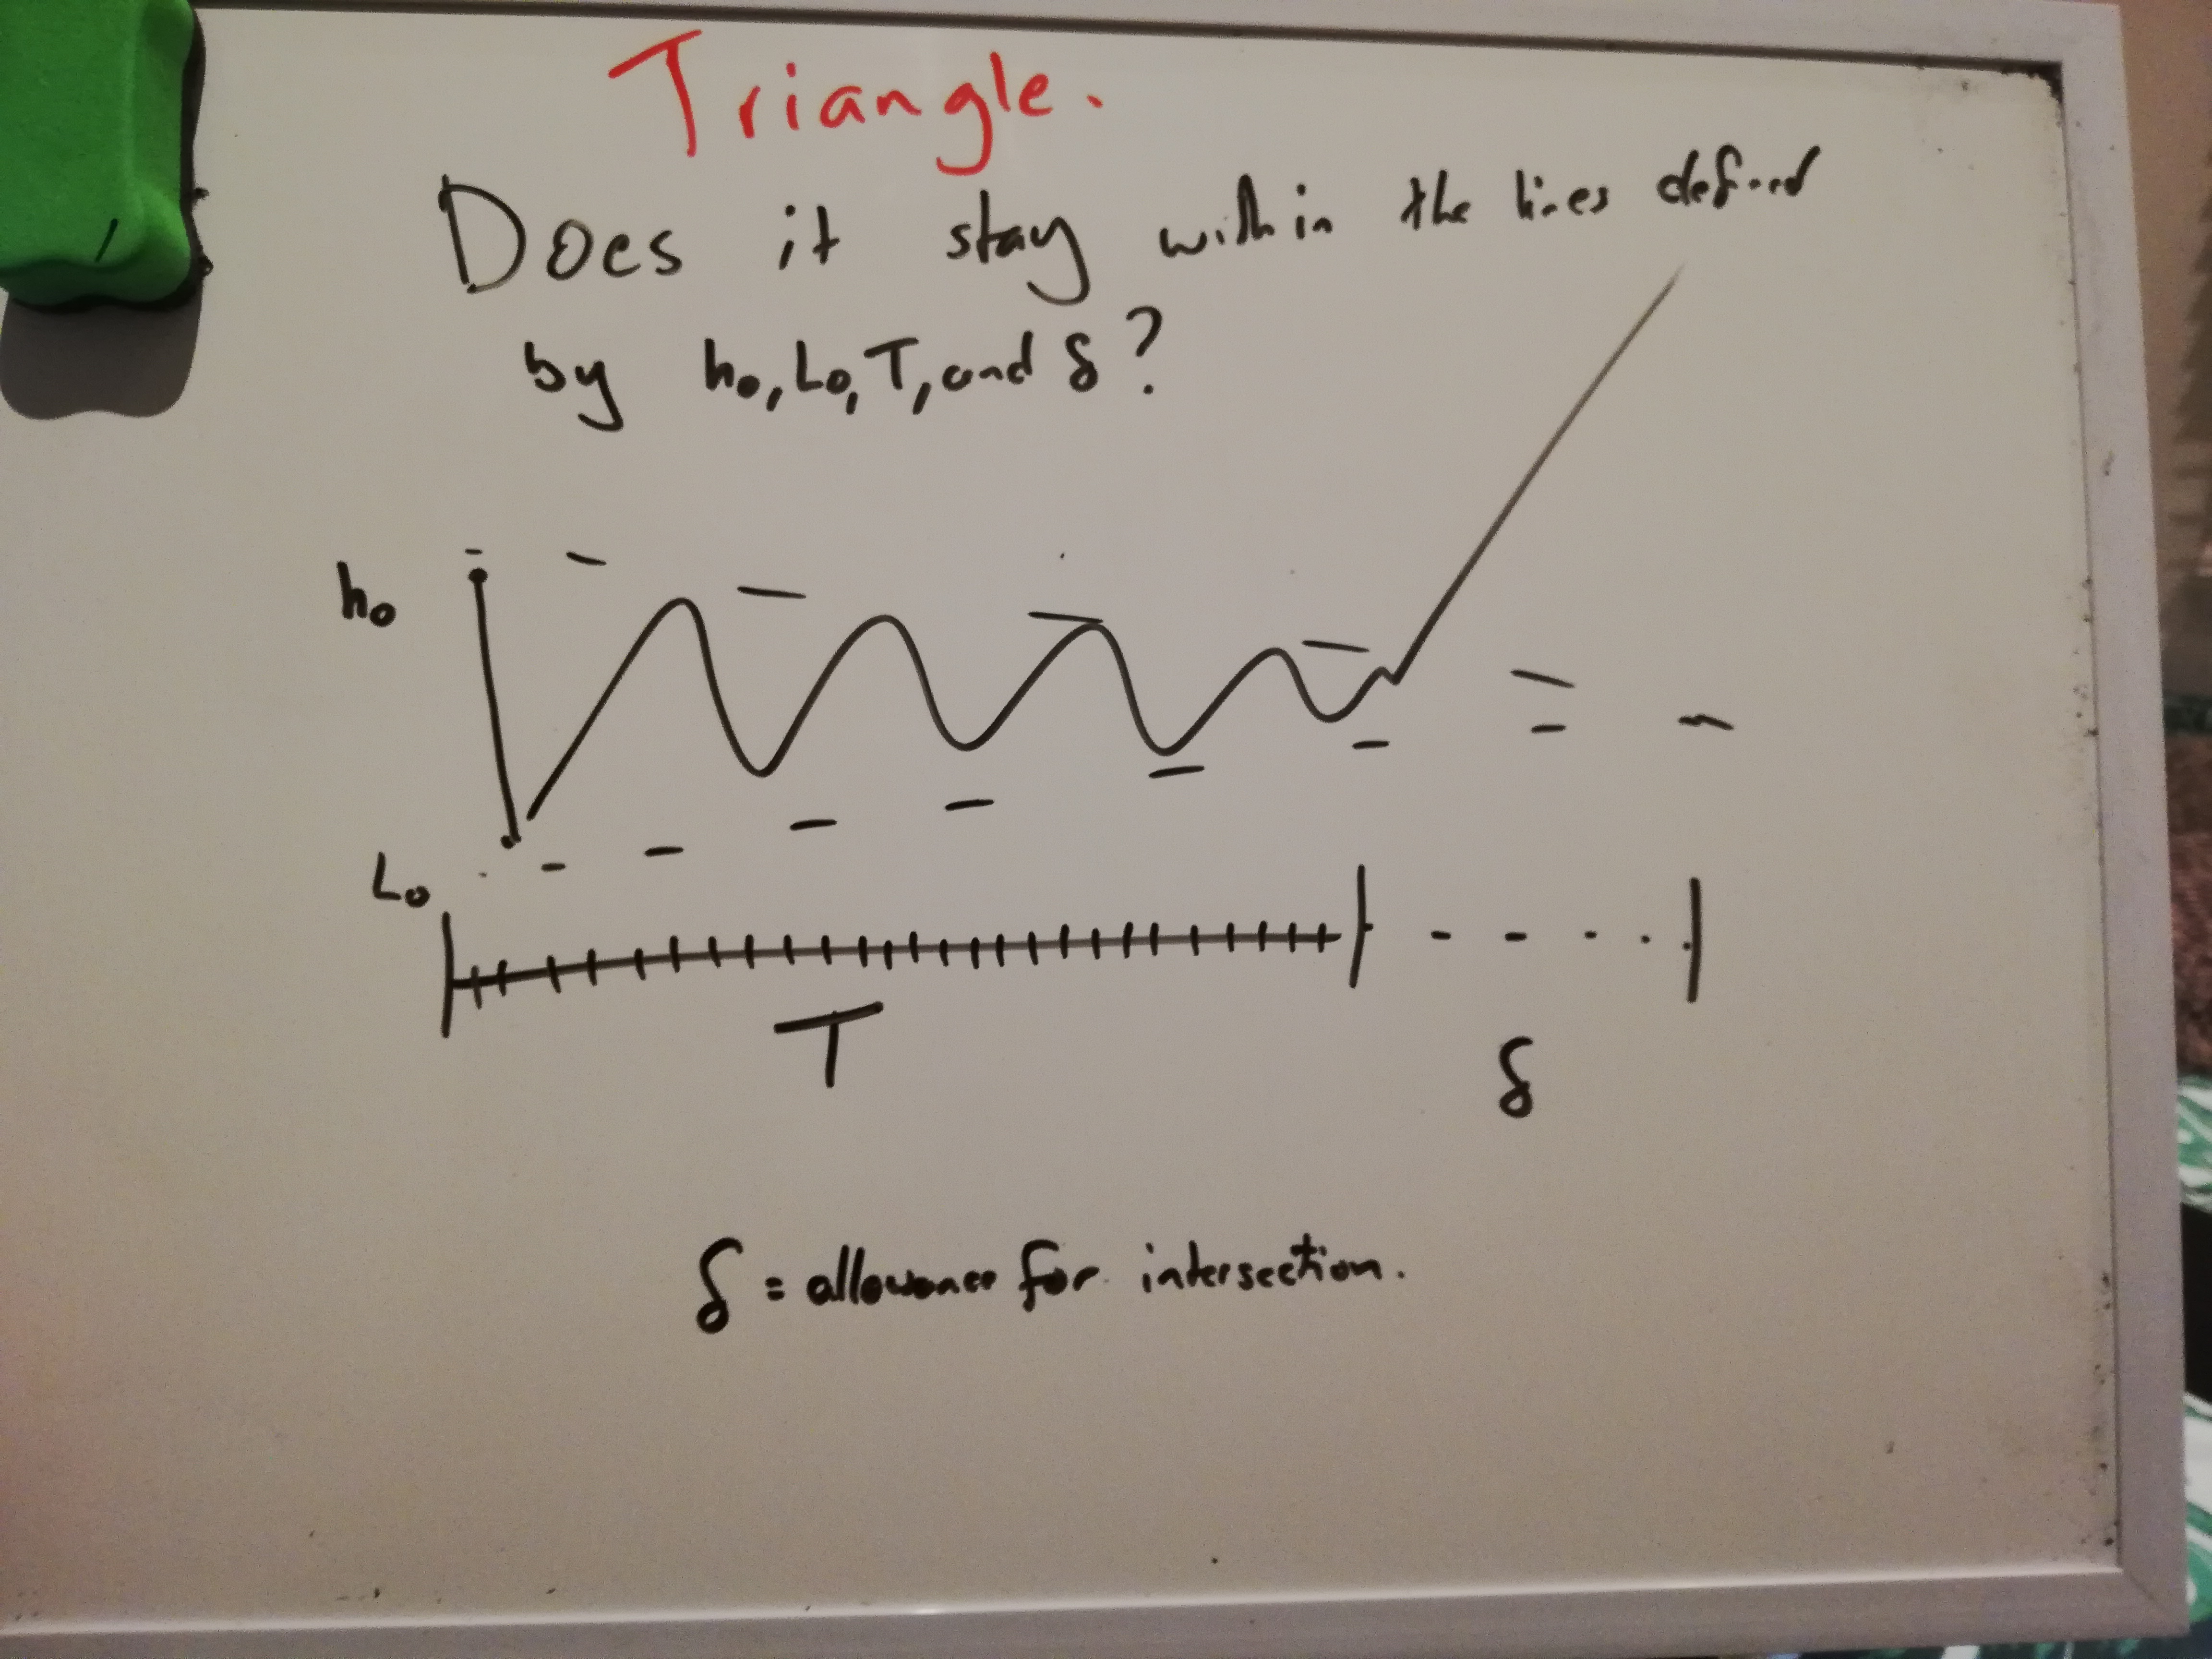 Triangle.
Does it stay within the lines defined
by h₀, L₀, T, and δ?
h₀
L₀
T
δ
δ = allowance for intersection.